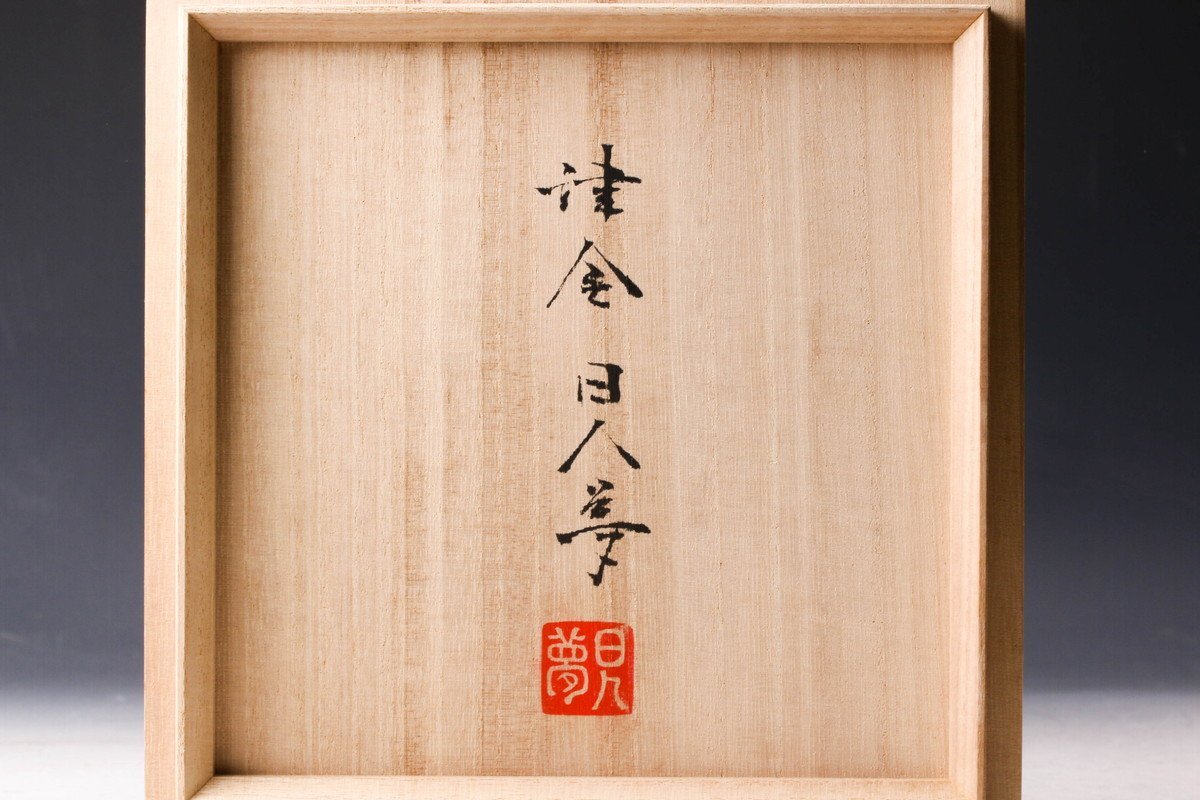 津金日人夢
日人夢